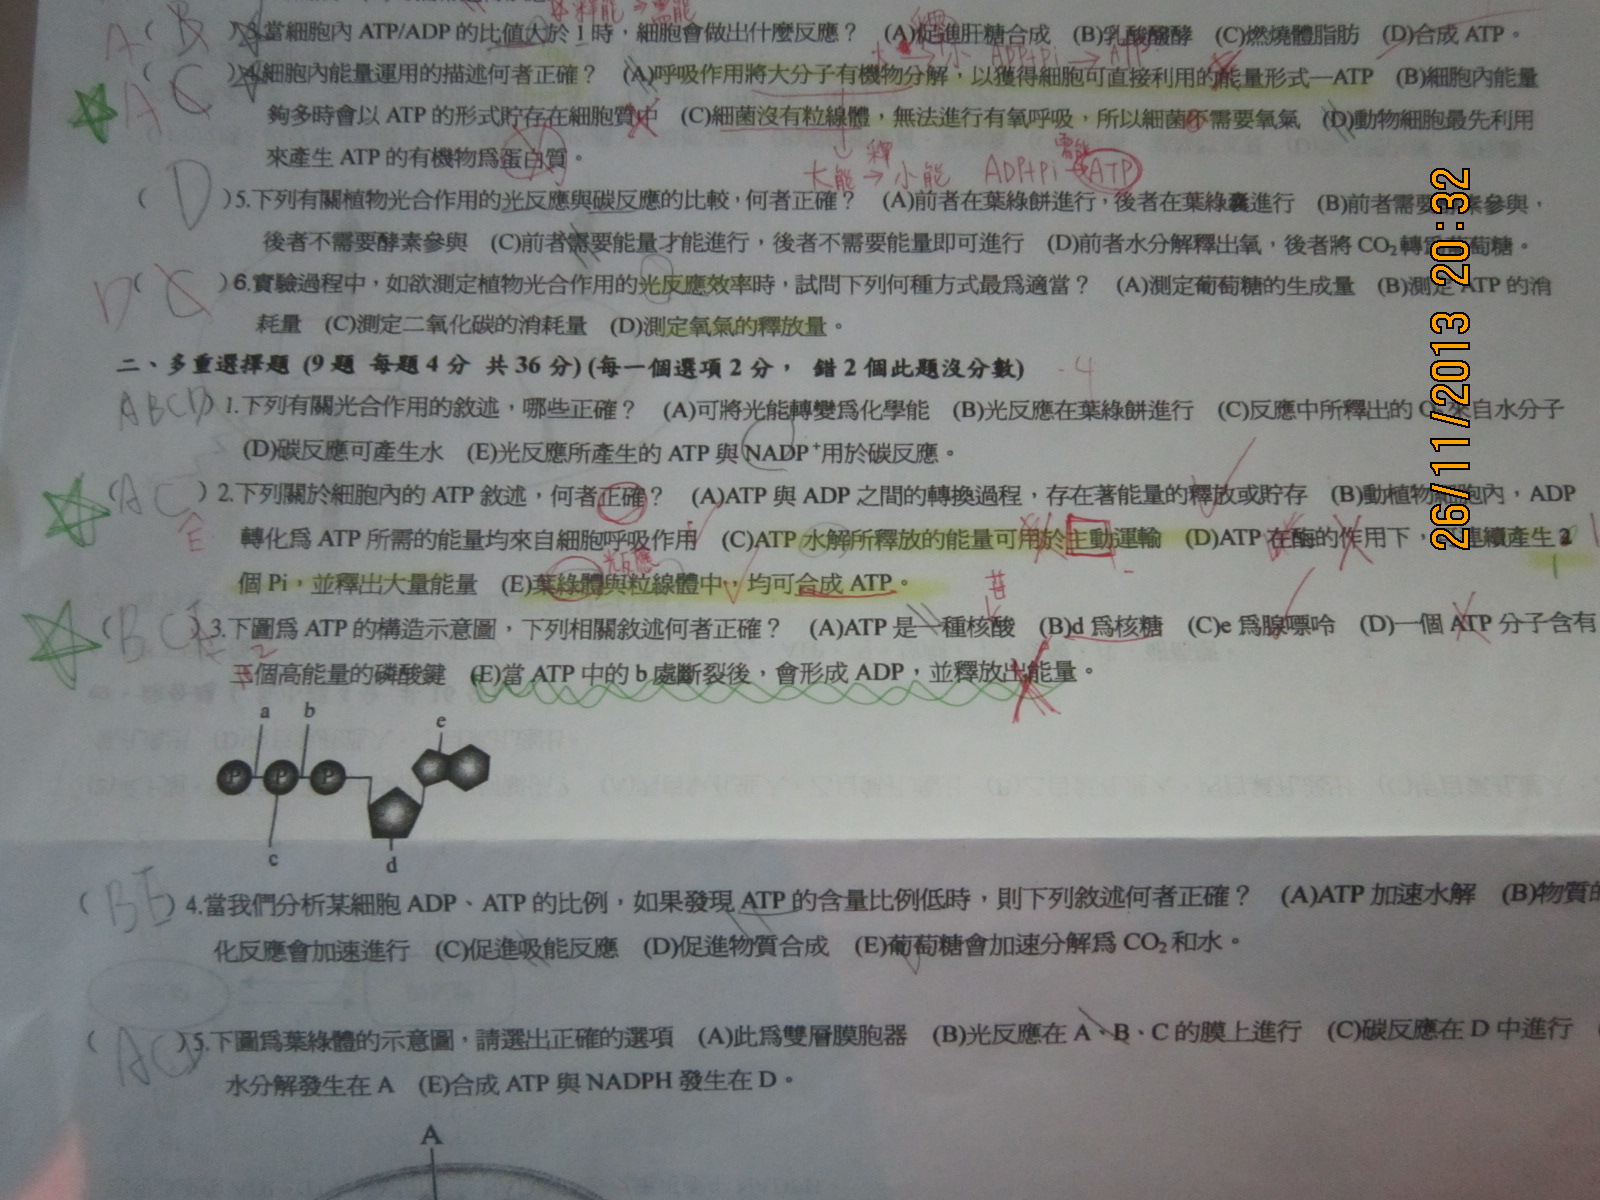 )3.當細胞內 ATP/ADP 的比值大於 1 時，細胞會做出什麼反應？ (A)促進肝糖合成 (B)乳酸醱酵 (C)燃燒體脂肪 (D)合成 ATP。
A ( B
ADP+Pi → ATP
A ( C )4.細胞內能量運用的描述何者正確？ (A)呼吸作用將大分子有機物分解，以獲得細胞可直接利用的能量形式—ATP (B)細胞內能量
夠多時會以 ATP 的形式貯存在細胞質中 (C)細菌沒有粒線體，無法進行有氧呼吸，所以細菌不需要氧氣 (D)動物細胞最先利用
來產生 ATP 的有機物為蛋白質。
大能 釋→ 小能 ADP+Pi 需能→ ATP
( D )5.下列有關植物光合作用的光反應與碳反應的比較，何者正確？ (A)前者在葉綠餅進行，後者在葉綠囊進行 (B)前者需要酵素參與，
後者不需要酵素參與 (C)前者需要能量才能進行，後者不需要能量即可進行 (D)前者水分解釋出氧，後者將 CO₂ 轉為葡萄糖。
D ( C )6.實驗過程中，如欲測定植物光合作用的光反應效率時，試問下列何種方式最為適當？ (A)測定葡萄糖的生成量 (B)測定 ATP 的消
耗量 (C)測定二氧化碳的消耗量 (D)測定氧氣的釋放量。
二、多重選擇題 (9 題 每題 4 分 共 36 分) (每一個選項 2 分， 錯 2 個此題沒分數) -4
ABCD) 1.下列有關光合作用的敘述，哪些正確？ (A)可將光能轉變為化學能 (B)光反應在葉綠餅進行 (C)反應中所釋出的 O₂ 來自水分子
(D)碳反應可產生水 (E)光反應所產生的 ATP 與 NADP⁺用於碳反應。
(AC ) 2.下列關於細胞內的 ATP 敘述，何者正確？ (A)ATP 與 ADP 之間的轉換過程，存在著能量的釋放或貯存 (B)動植物細胞內，ADP
E
轉化為 ATP 所需的能量均來自細胞呼吸作用 (C)ATP 水解所釋放的能量可用於主動運輸 (D)ATP 在酶的作用下， 連續產生 2
光反應
1
個 Pi，並釋出大量能量 (E)葉綠體與粒線體中，均可合成 ATP。
苷
(BC )3.下圖為 ATP 的構造示意圖，下列相關敘述何者正確？ (A)ATP 是一種核酸 (B)d 為核糖 (C)e 為腺嘌呤 (D)一個 ATP 分子含有
2
三個高能量的磷酸鍵 (E)當 ATP 中的 b 處斷裂後，會形成 ADP，並釋放出能量。
a b e
P P P
c d
( BE ) 4.當我們分析某細胞 ADP、ATP 的比例，如果發現 ATP 的含量比例低時，則下列敘述何者正確？ (A)ATP 加速水解 (B)物質的
化反應會加速進行 (C)促進吸能反應 (D)促進物質合成 (E)葡萄糖會加速分解為 CO₂ 和水。
( AC )5.下圖為葉綠體的示意圖，請選出正確的選項 (A)此為雙層膜胞器 (B)光反應在 A、B、C 的膜上進行 (C)碳反應在 D 中進行 (
水分解發生在 A (E)合成 ATP 與 NADPH 發生在 D。
A
26/11/2013 20:32